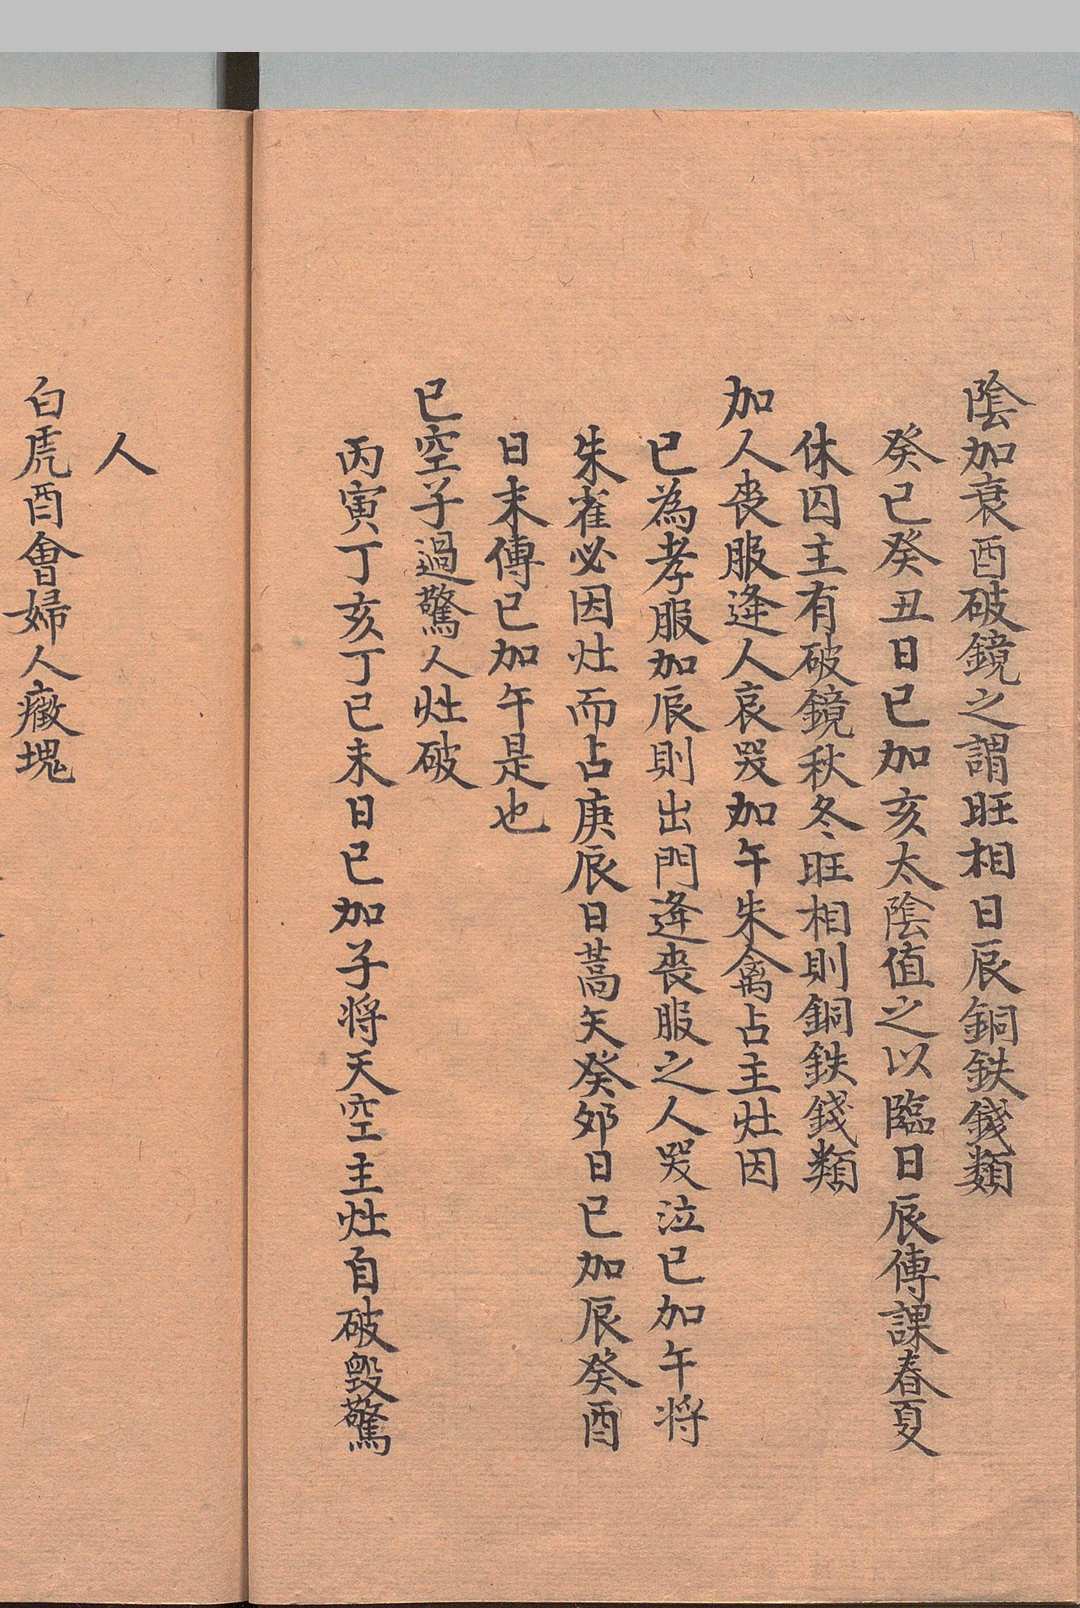 陰加衰酉破鏡之謂旺相日辰銅鉄錢類
癸巳癸丑日巳加亥太陰值之以臨日辰傳課春夏
休囚主有破鏡秋冬旺相則銅鉄錢類
加人喪服逢人哀哭加午朱禽占主灶因
巳為孝服加辰則出門逢喪服之人哭泣巳加午将
朱雀必因灶而占庚辰日蒿矢癸夘日巳加辰癸酉
日末傳巳加午是也
巳空子過驚人灶破
丙寅丁亥丁巳未日巳加子将天空主灶自破毀驚
人
白虎酉會婦人癥塊